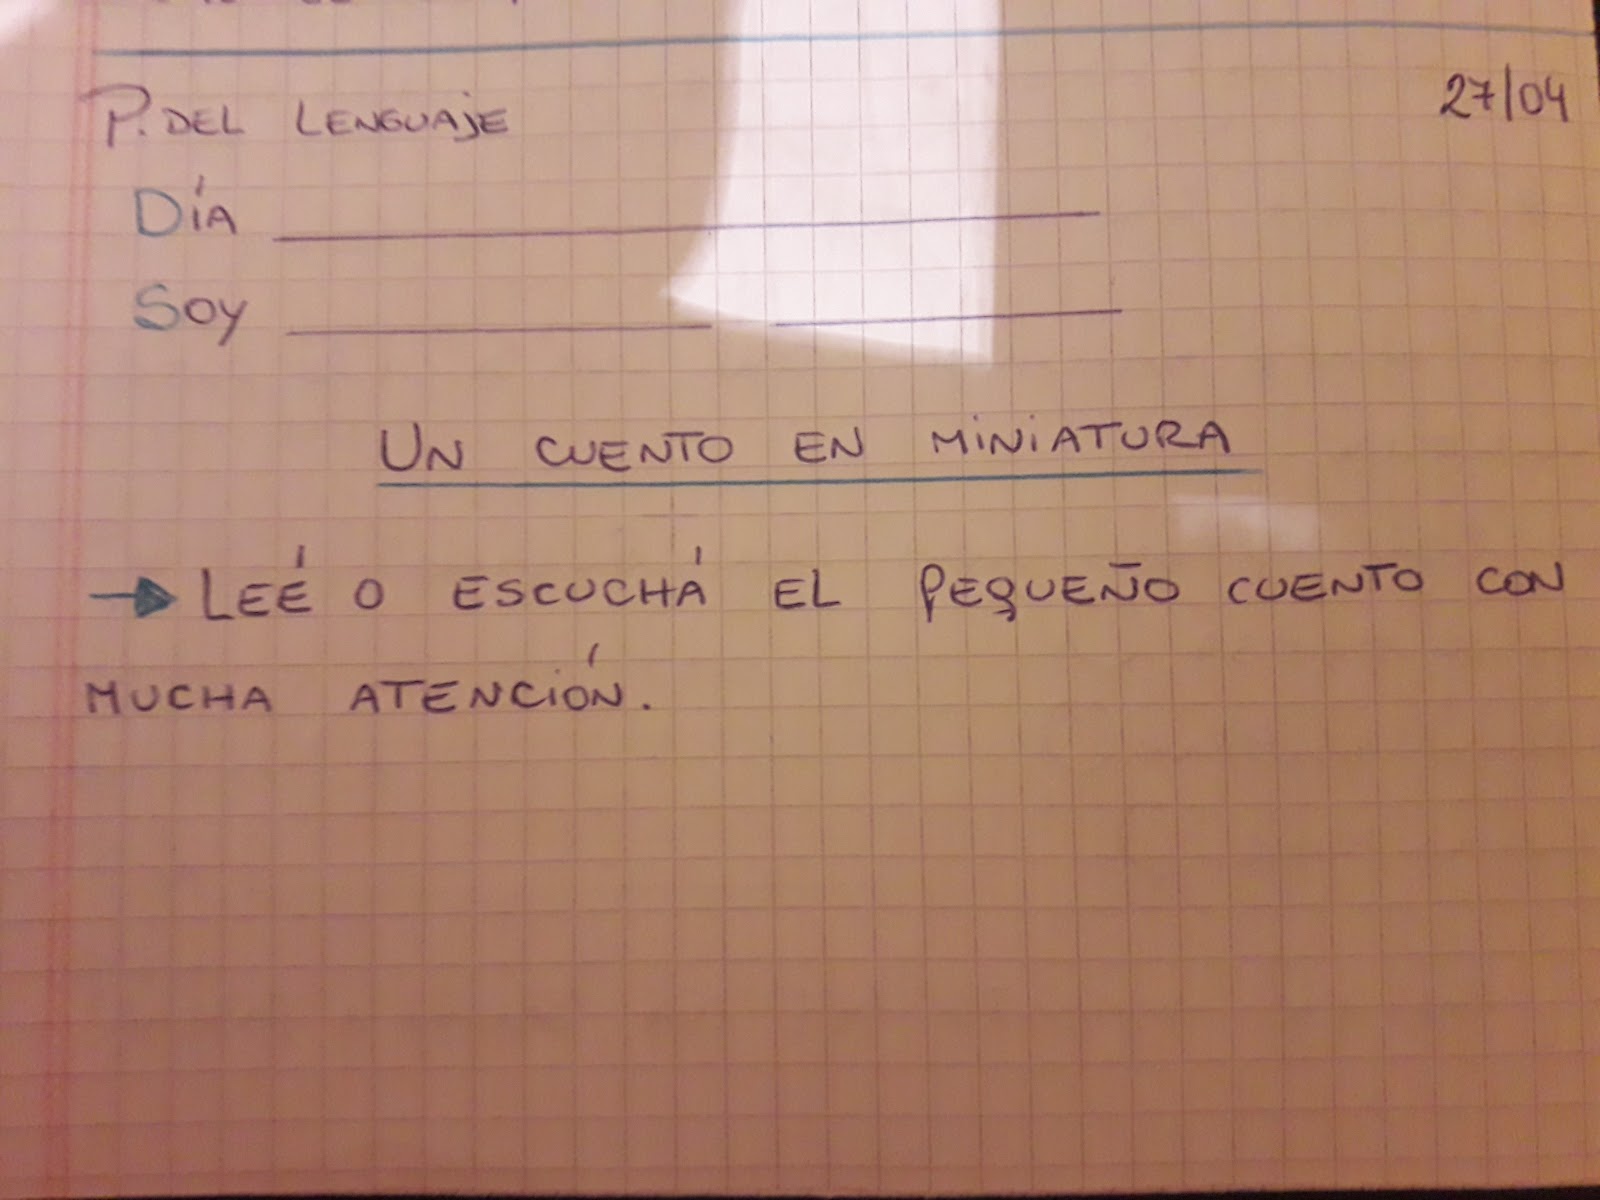 P. DEL LENGUAJE 27/04
DÍA
SOY
UN CUENTO EN MINIATURA
LEÉ O ESCUCHÁ EL PEQUEÑO CUENTO CON
MUCHA ATENCIÓN.